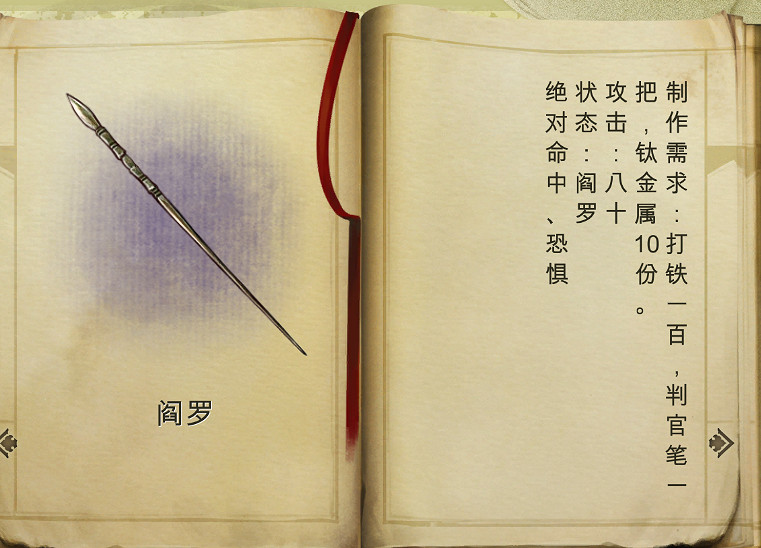 阎罗
制作需求：打铁一百，判官笔一
把，钛金属10份。
攻击：八十
状态：阎罗
绝对命中、恐惧